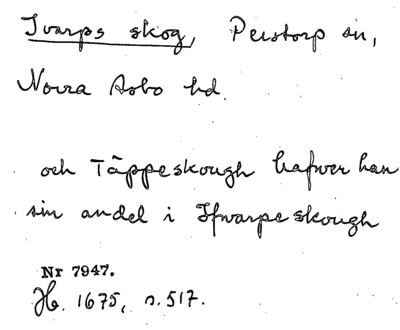 Ivarps skog, Perstorp sn,
Norra Åsbo hd.
och Täppeskough hafwer han
sin andel i Ifwarpe skough
Nr 7947.
Jb. 1675, s. 517.